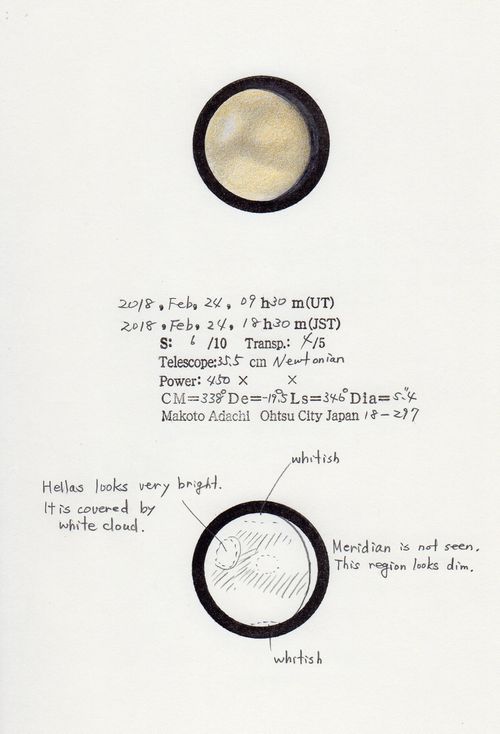 2018, Feb, 24, 09 h 30 m(UT)
2018, Feb, 24, 18 h 30 m(JST)
S: 6 /10 Transp.: 4/5
Telescope: 35.5 cm Newtonian
Power: 450 × ×
CM=338° De=-19.5 Ls=346° Dia=5."4
Makoto Adachi Ohtsu City Japan 18-297
whitish
Hellas looks very bright.
It is covered by
white cloud.
Meridian is not seen.
This region looks dim.
whitish